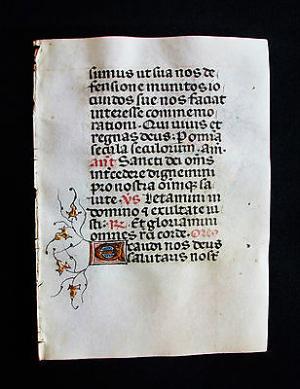 sumus ut sua nos de
fensione munitos io
cundos sue nos faciat
interesse commemo
rationi. Qui vivis et
regnas deus. P omia
secula seculorum. am.
ant Sancti dei oms
intcedere dignemini
pro nostra oimque sa
lute. Vs Letamini in
domino & exultate iu
sti. R Et gloriamini
omnes r̄ti corde. Oro
Exaudi nos deus
salutaris nost